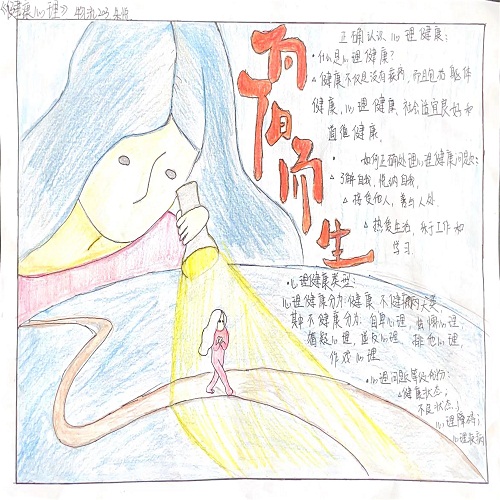 《健康心理》物流203
向阳而生
正确认识心理健康:
·什么是心理健康?
△健康不仅是没有疾病,而且包括躯体
健康、心理健康、社会适应良好和
道德健康。
·如何正确处理心理健康问题:
△了解自我,悦纳自我,
△接受他人,善与人处
△热爱生活,乐于工作和
学习
·心理健康类型:
心理健康分为:健康、不健康两大类
其中不健康分为:自身心理、
心理、逆反心理、排他心理
作戏心理
·心理问题等级划分:
△健康状态;
不良状态;
心理障碍;
心理疾病